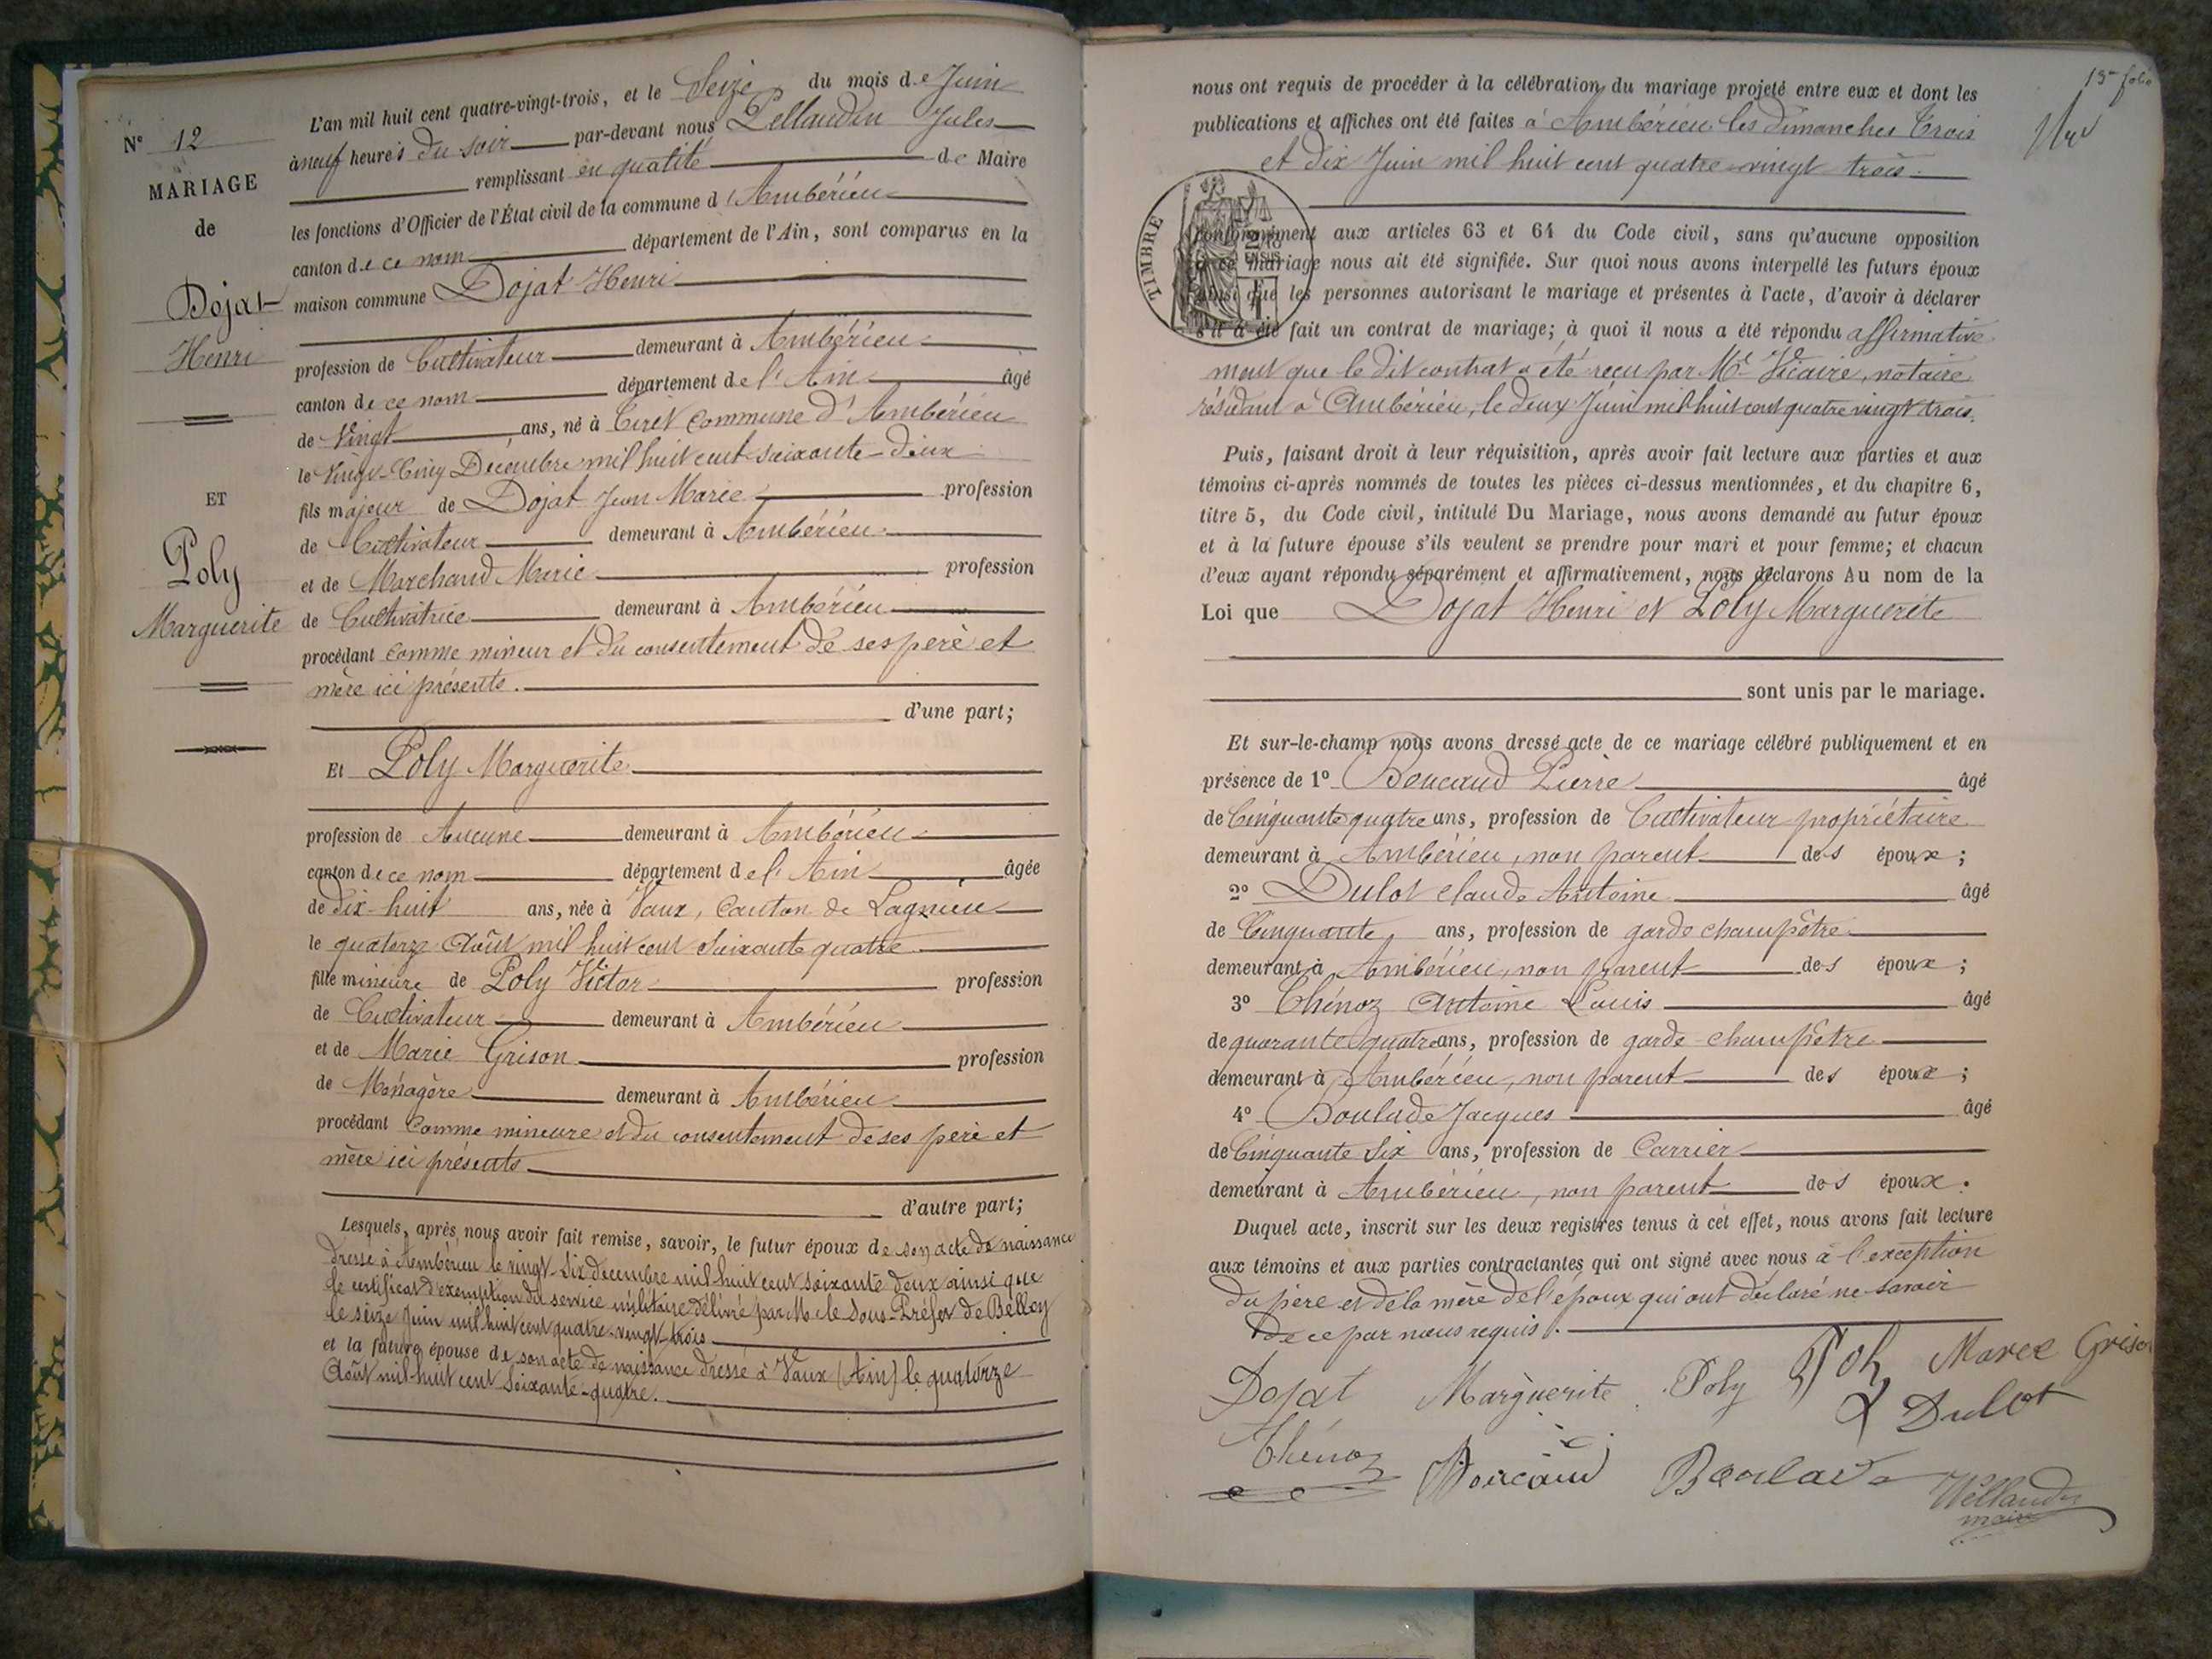 N° 12
MARIAGE
de
Dojat
Henri
ET
Poly
Marguerite
L'an mil huit cent quatre-vingt-trois, et le Seize du mois de Juin
à neuf heures du soir par-devant nous Pellaudin Jules
remplissant en qualité de Maire
les fonctions d'Officier de l'État civil de la commune d'Ambérieu
canton de ce nom département de l'Ain, sont comparus en la
maison commune Dojat Henri
profession de Cultivateur demeurant à Ambérieu
canton de ce nom département de l'Ain âgé
de Vingt ans, né à Tiret commune d'Ambérieu
le Vingt-Cinq Décembre mil huit cent soixante-deux
fils majeur de Dojat Jean Marie profession
de Cultivateur demeurant à Ambérieu
et de Marchand Marie profession
de Cultivatrice demeurant à Ambérieu
procédant comme mineur et du consentement de ses père et
mère ici présents.
d'une part;
Et Poly Marguerite
profession de Aucune demeurant à Ambérieu
canton de ce nom département de l'Ain âgée
de dix-huit ans, née à Vaux, Canton de Lagnieu
le quatorze Août mil huit cent soixante quatre
fille mineure de Poly Victor profession
de Cultivateur demeurant à Ambérieu
et de Marie Grison profession
de Ménagère demeurant à Ambérieu
procédant Comme mineure et du consentement de ses père et
mère ici présents
d'autre part;
Lesquels, après nous avoir fait remise, savoir, le futur époux de son acte de naissance
dressé à Ambérieu le vingt-six décembre mil huit cent soixante deux ainsi que
le certificat d'exemption du service militaire délivré par M. le Sous-Préfet de Belley
le seize Juin mil huit cent quatre-vingt-trois
et la future épouse de son acte de naissance dressé à Vaux (Ain) le quatorze
Août mil huit cent soixante-quatre.
13e folio
nous ont requis de procéder à la célébration du mariage projeté entre eux et dont les
publications et affiches ont été faites à Ambérieu les dimanches Trois
et dix Juin mil huit cent quatre-vingt-trois.
TIMBRE
conformément aux articles 63 et 64 du Code civil, sans qu'aucune opposition
à ce mariage nous ait été signifiée. Sur quoi nous avons interpellé les futurs époux
ainsi que les personnes autorisant le mariage et présentes à l'acte, d'avoir à déclarer
s'il a été fait un contrat de mariage; à quoi il nous a été répondu affirmative
ment que le dit contrat a été reçu par Me Vicaire, notaire
résidant à Ambérieu, le deux Juin mil huit cent quatre vingt trois.
Puis, faisant droit à leur réquisition, après avoir fait lecture aux parties et aux
témoins ci-après nommés de toutes les pièces ci-dessus mentionnées, et du chapitre 6,
titre 5, du Code civil, intitulé Du Mariage, nous avons demandé au futur époux
et à la future épouse s'ils veulent se prendre pour mari et pour femme; et chacun
d'eux ayant répondu séparément et affirmativement, nous déclarons Au nom de la
Loi que Dojat Henri et Poly Marguerite
sont unis par le mariage.
Et sur-le-champ nous avons dressé acte de ce mariage célébré publiquement et en
présence de 1° Boucaud Pierre âgé
de Cinquante quatre ans, profession de Cultivateur propriétaire
demeurant à Ambérieu, non parent des époux;
2° Dulot Claude Antoine âgé
de Cinquante ans, profession de garde champêtre
demeurant à Ambérieu, non parent des époux;
3° Thénoz Antoine Louis âgé
de quarante quatre ans, profession de garde-champêtre
demeurant à Ambérieu, non parent des époux;
4° Boulade Jacques âgé
de Cinquante six ans, profession de Carrier
demeurant à Ambérieu, non parent des époux.
Duquel acte, inscrit sur les deux registres tenus à cet effet, nous avons fait lecture
aux témoins et aux parties contractantes qui ont signé avec nous à l'exception
du père et de la mère de l'époux qui ont déclaré ne savoir
de ce par nous requis.
Dojat Marguerite Poly Marie Grison
Dulot
Thénoz Boucaud Boulade Pellaudin
maire